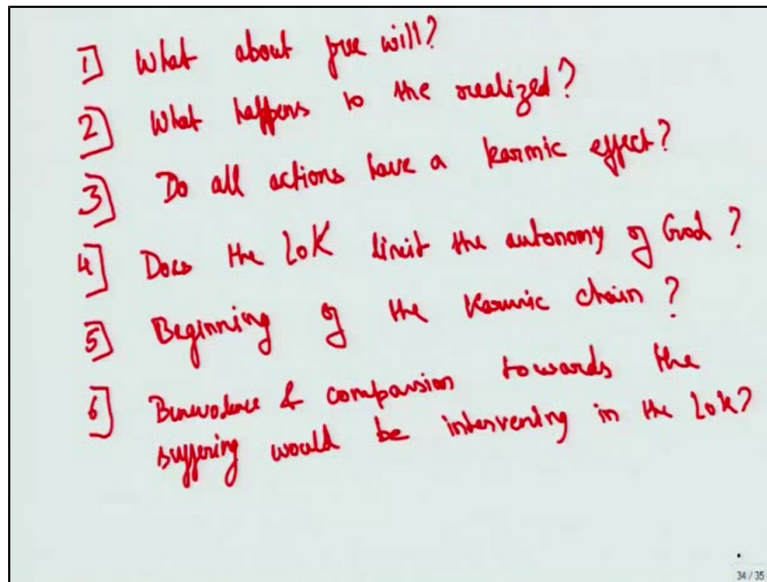 1] What about free will?
2] What happens to the realized?
3] Do all actions have a karmic effect?
4] Does the LoK limit the autonomy of God?
5] Beginning of the Karmic chain?
6] Benevolence & compassion towards the
suffering would be intervening in the LoK?
34 / 35